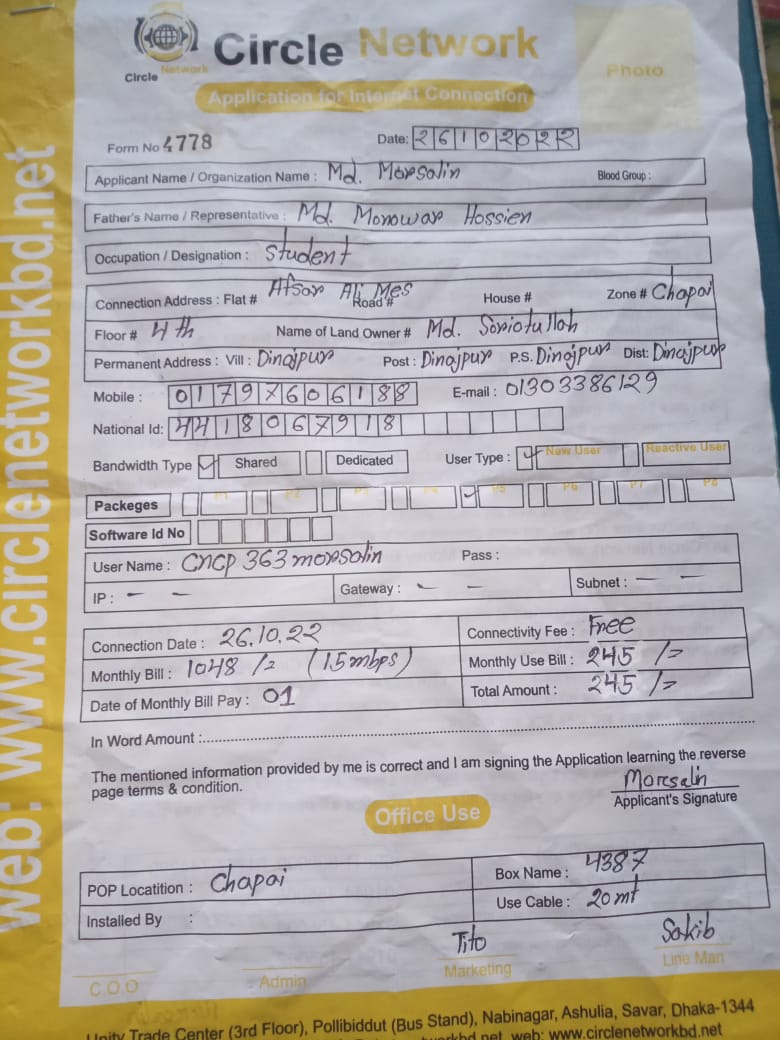 Circle Network
Circle Network
Photo
Application for Internet Connection
Form No 4778 Date: 26102022
Applicant Name / Organization Name : Md. Morsalin Blood Group :
Father's Name / Representative : Md. Monowar Hossien
Occupation / Designation : Student
Connection Address : Flat # Afsar Ali Mes Road # House # Zone # Chapai
Floor # 4th Name of Land Owner # Md. Soriotullah
Permanent Address : Vill : Dinajpur Post : Dinajpur P.S. Dinajpur Dist: Dinajpur
Mobile : 01797606188 E-mail : 01303386129
National Id: 4418067918
Bandwidth Type ✓ Shared Dedicated User Type : ✓ New User Reactive User
Packeges P1 P2 P3 P4 ✓ P5 P6 P7 P8
Software Id No
User Name : CNCP 363 morsalin Pass :
IP : - - Gateway : - - Subnet : - -
Connection Date : 26.10.22 Connectivity Fee : Free
Monthly Bill : 1048 /= (15mbps) Monthly Use Bill : 245 /=
Date of Monthly Bill Pay : 01 Total Amount : 245 /=
In Word Amount :
The mentioned information provided by me is correct and I am signing the Application learning the reverse
page terms & condition.
Morsalin
Applicant's Signature
Office Use
POP Locatition : Chapai Box Name : 4387
Installed By : Use Cable : 20 mt
Tito Sakib
C.O.O Admin Marketing Line Man
Unity Trade Center (3rd Floor), Pollibiddut (Bus Stand), Nabinagar, Ashulia, Savar, Dhaka-1344
web: www.circlenetworkbd.net
web: www.circlenetworkbd.net